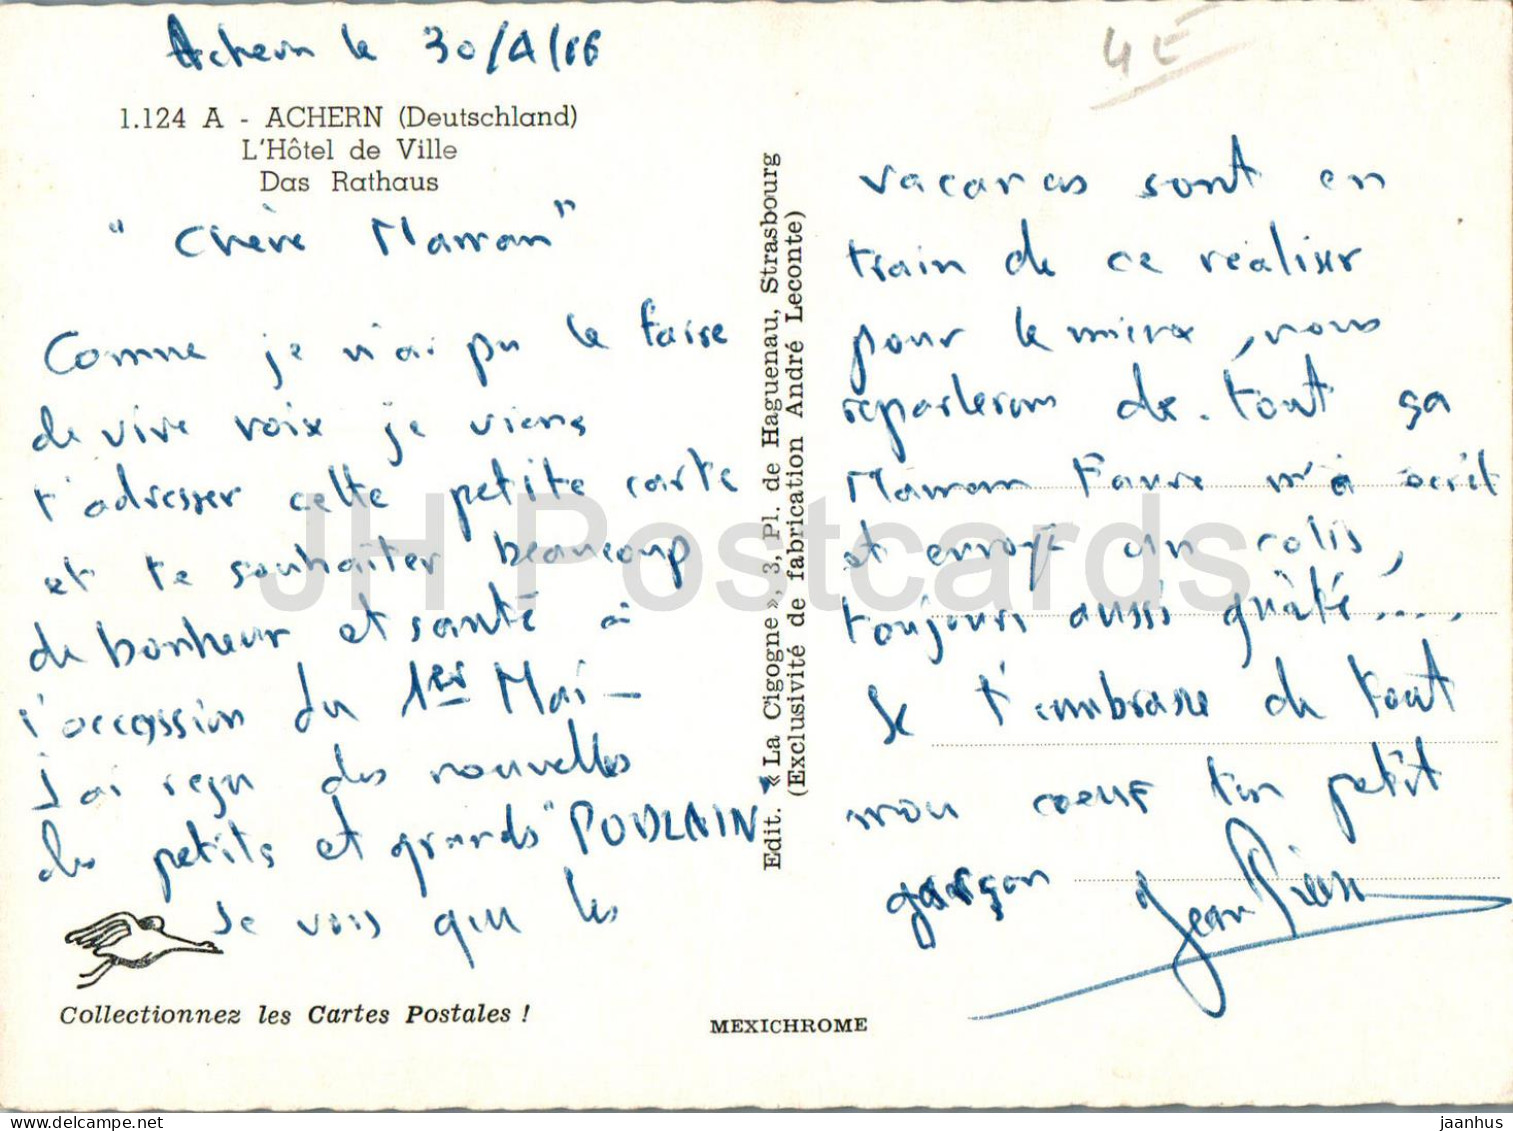 Achern le 30/4/66
4 E
1.124 A - ACHERN (Deutschland)
L'Hôtel de Ville
Das Rathaus
" Chère Maman "
Comme je n'ai pu le faire
de vive voix je viens
t'adresser cette petite carte
et te souhaiter beaucoup
de bonheur et santé à
l'occassion du 1er Mai -
J'ai reçu des nouvelles
des petits et grands "POULAIN"
Je vois que les
Collectionnez les Cartes Postales !
Edit. « La Cigogne », 3, Pl. de Haguenau, Strasbourg
(Exclusivité de fabrication André Leconte)
MEXICHROME
vacances sont en
train de ce réaliser
pour le mieux, nous
reparlerons de tout ça
Maman Favre m'a écrit
et envoyé un colis,
toujours aussi gâté.....
Je t'embrasse de tout
mon coeur ton petit
garçon Jean Pierre
JH Postcards
delcampe.net
jaanhus